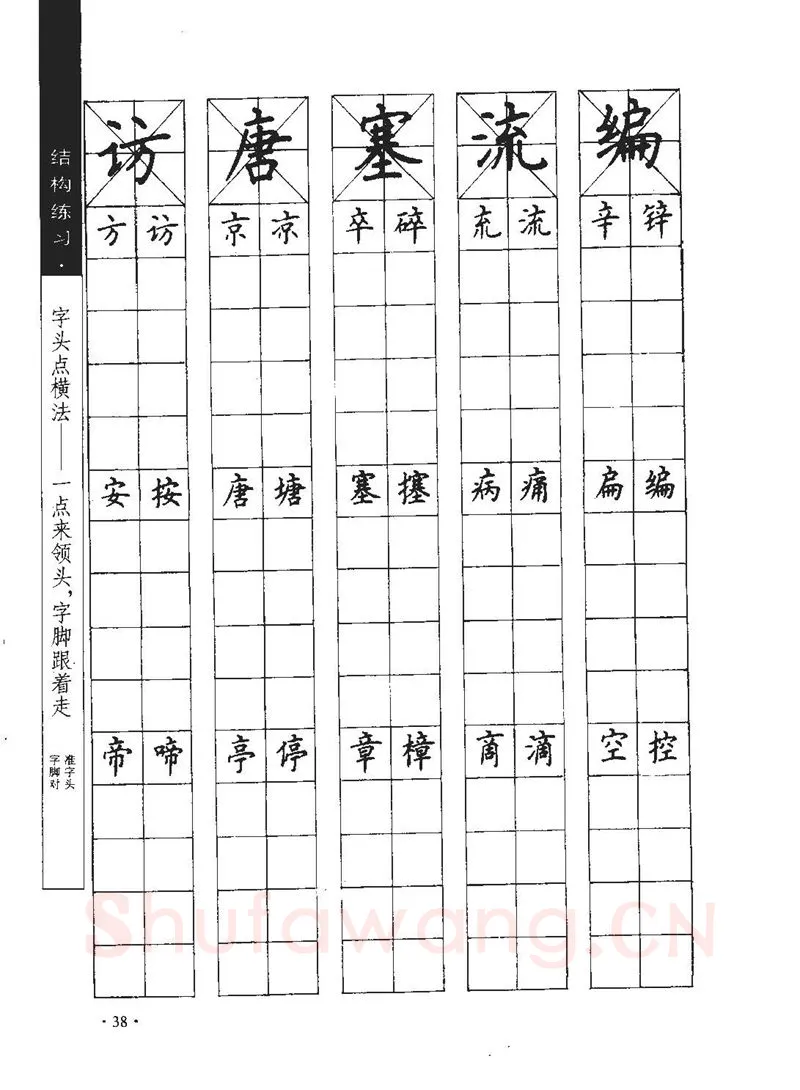 结构练习·
字头点横法——一点来领头，字脚跟着走
字脚对
准字头
访 唐 塞 流 编
方 访 京 凉 卒 碎 㐬 流 辛 锌
安 按 唐 塘 塞 搴 病 痛 扁 编
帝 啼 亭 停 章 樟 啇 滴 空 控
Shufawang.CN
·38·